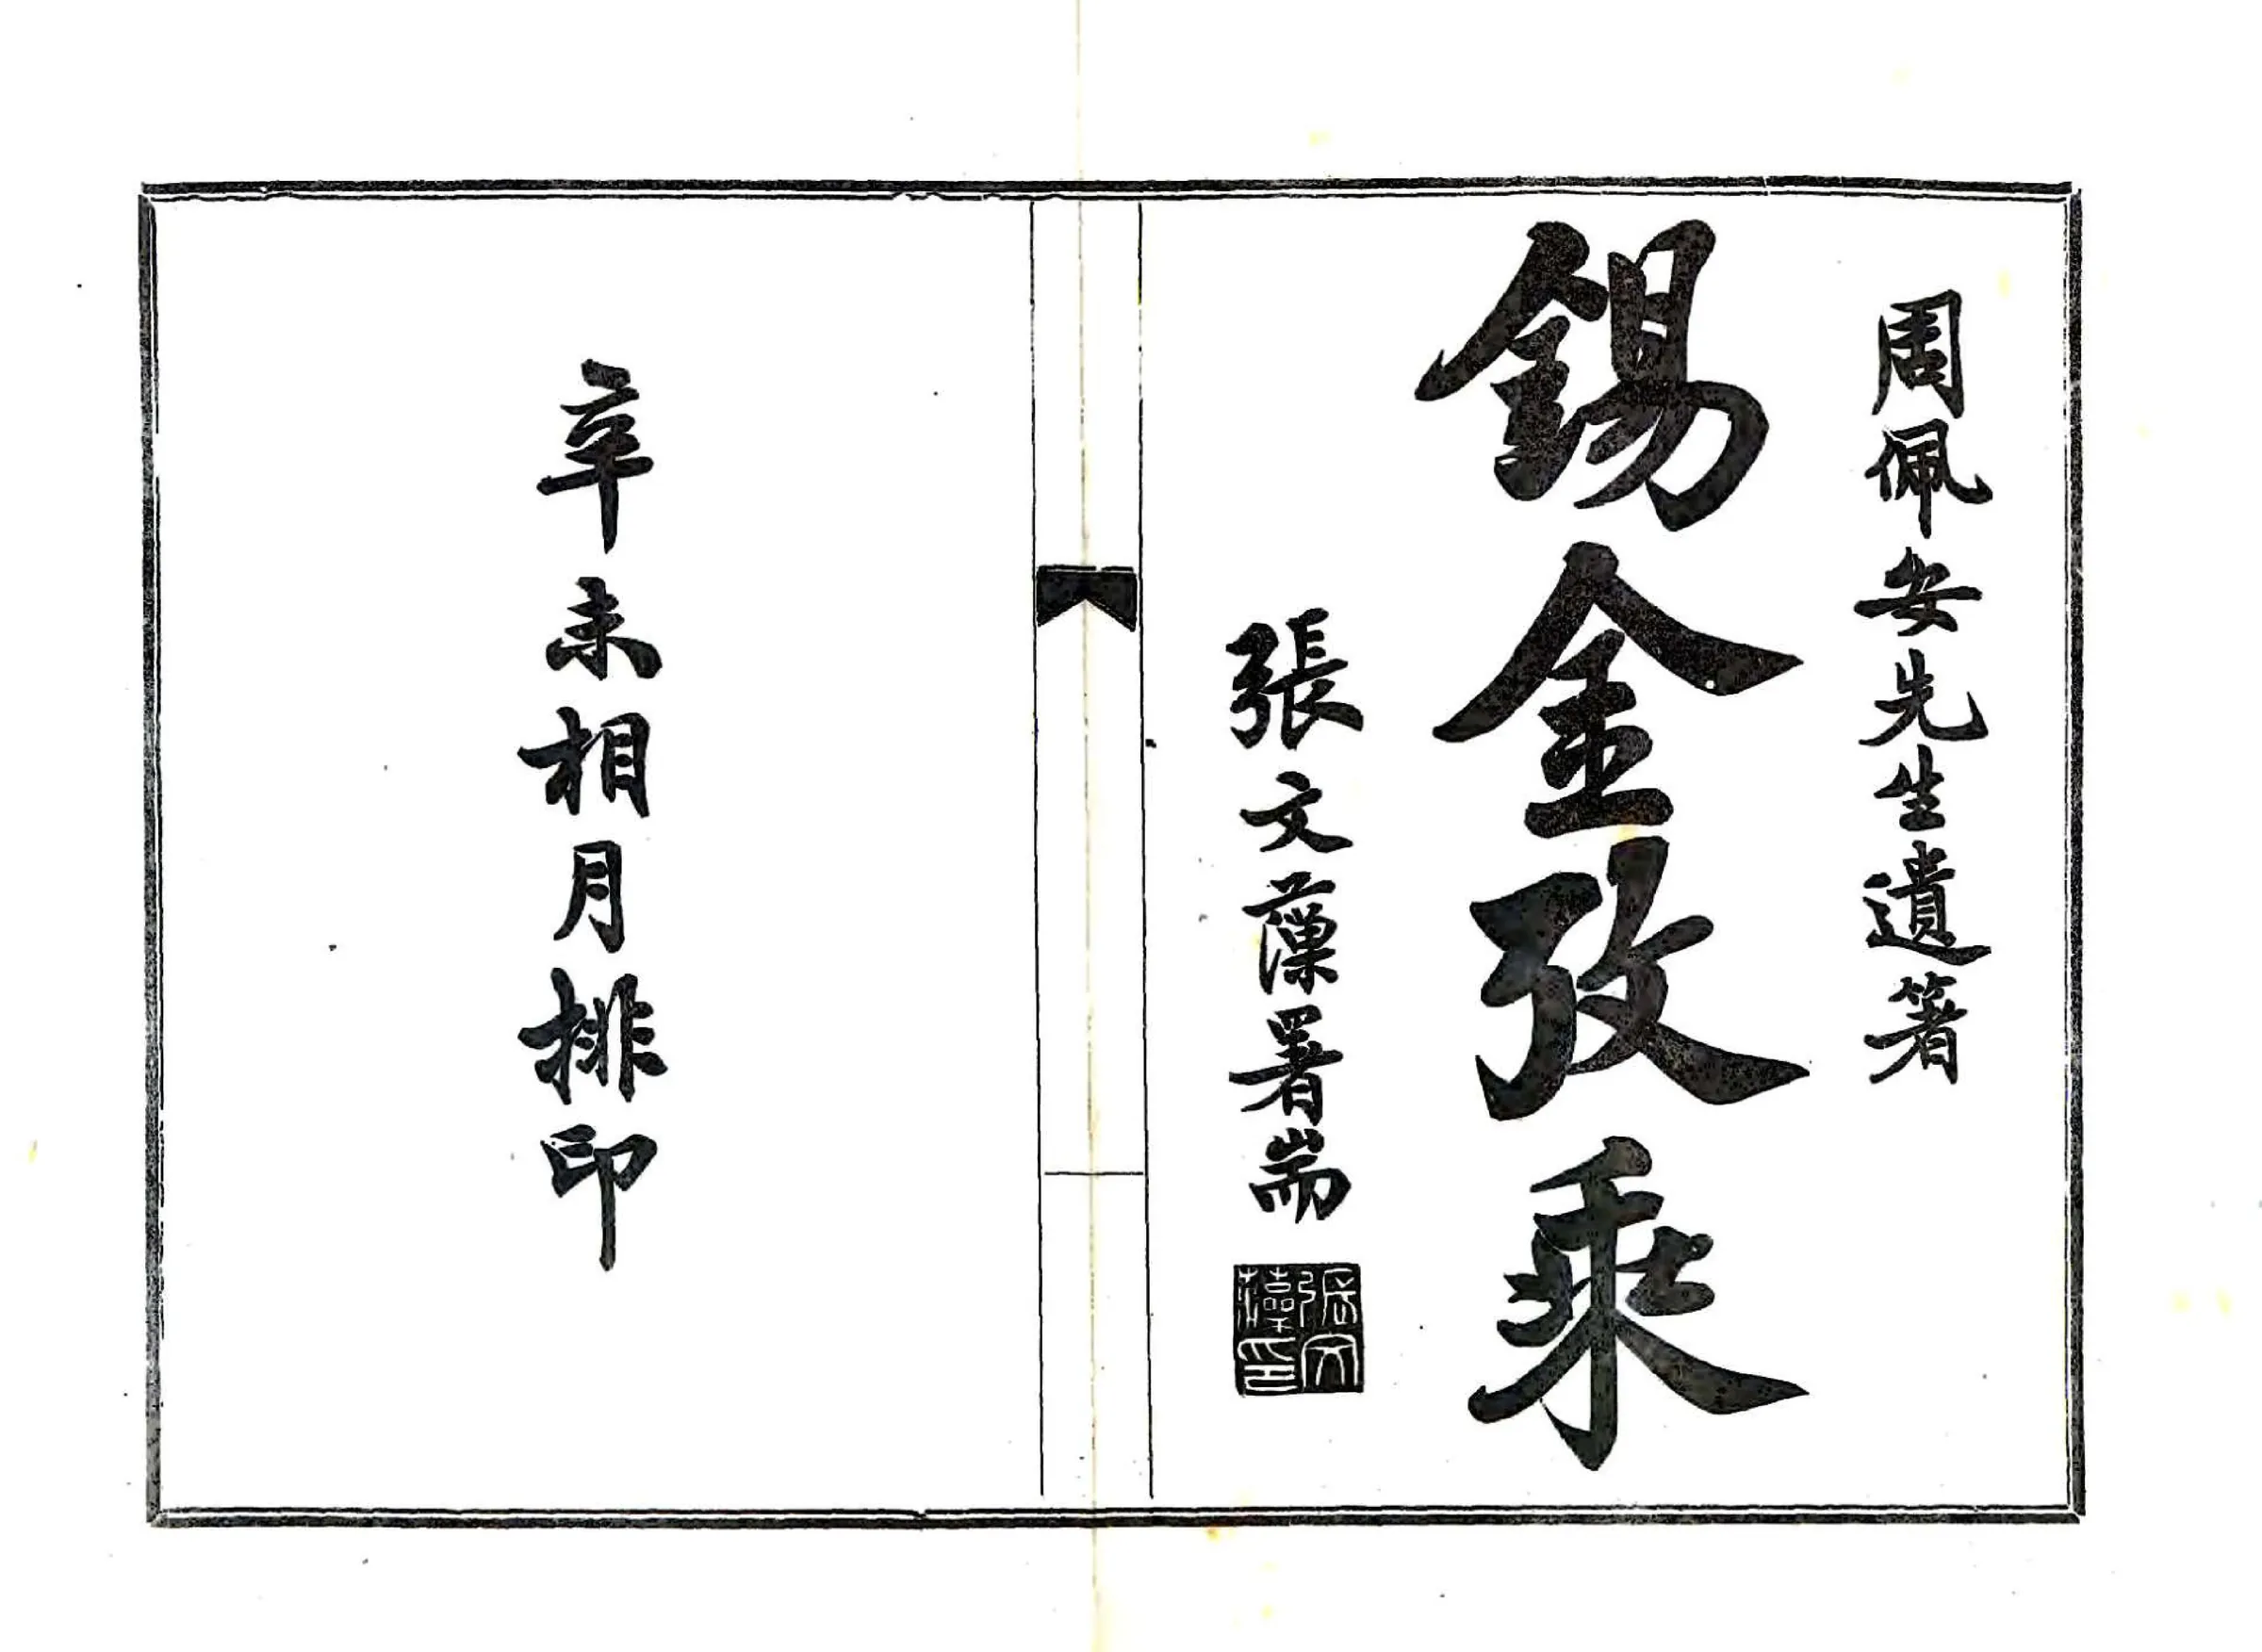 周佩安先生遺著
錫金攷乘
張文藻署耑
張文藻印
辛未相月排印